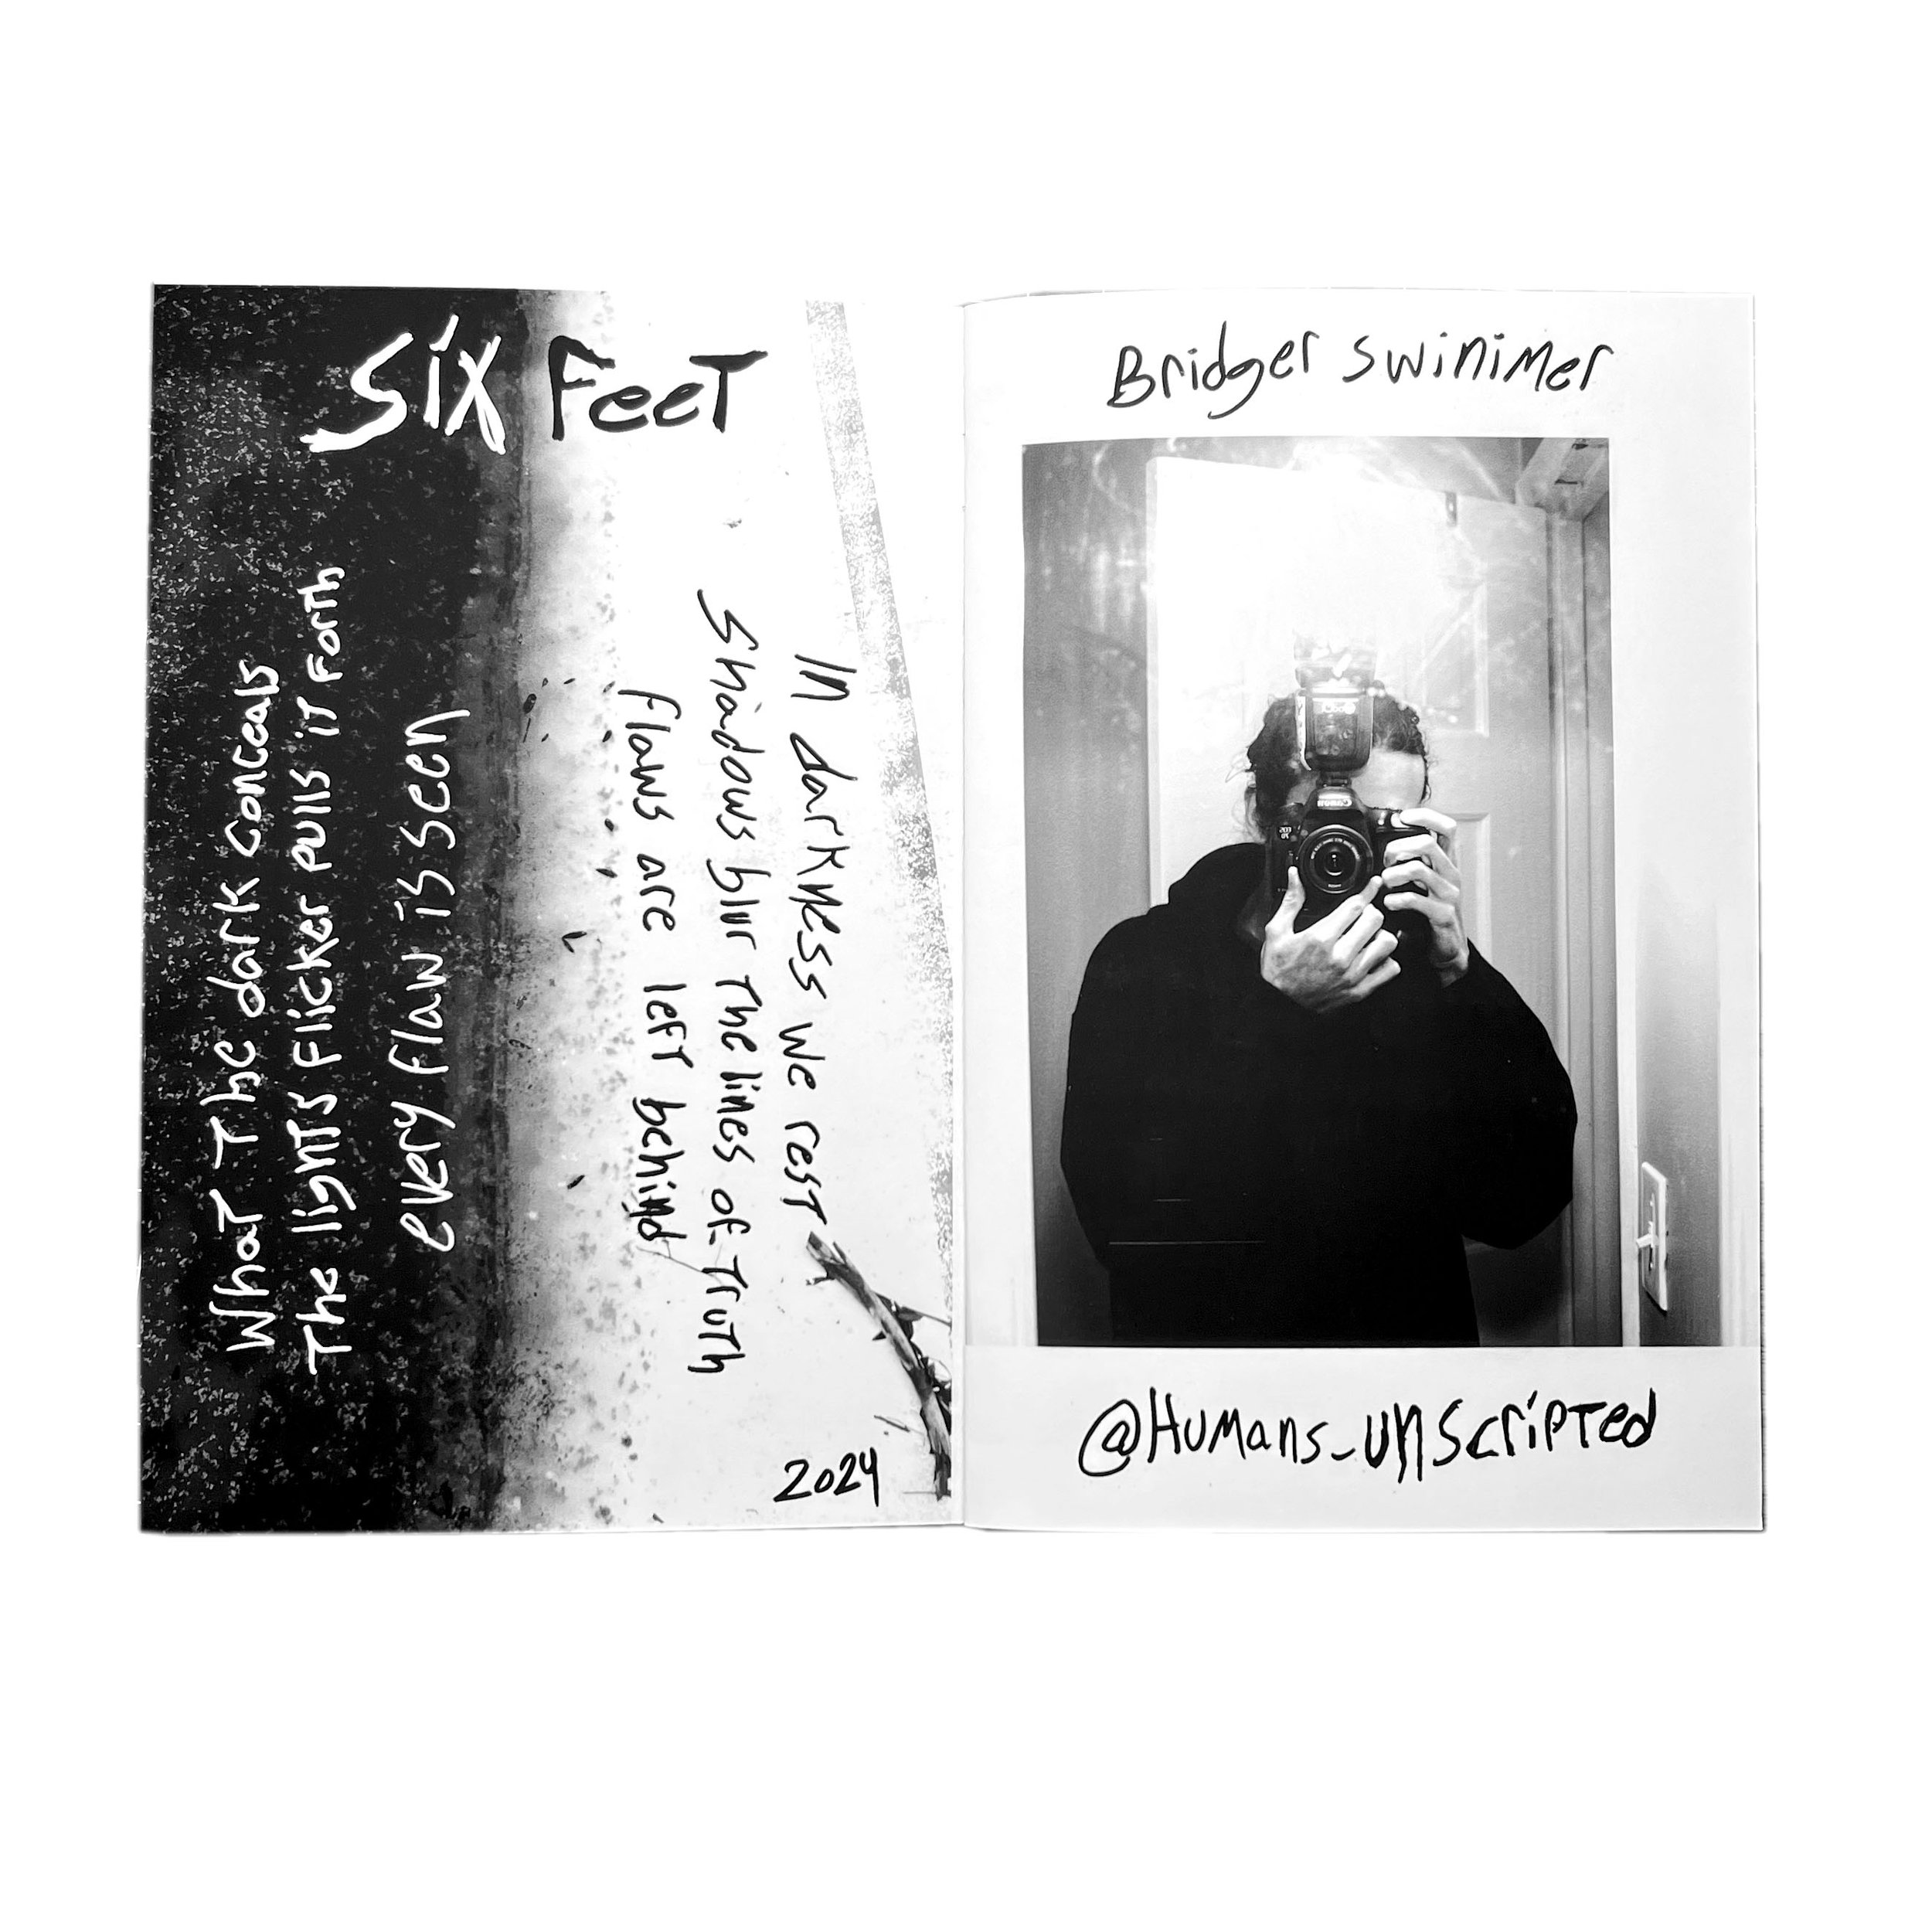 Six Feet
What The dark conceals
The lights flicker pulls it forth
every flaw is seen
In darkness we rest
Shadows blur The lines of Truth
flaws are left behind
2024
Bridger Swinimer
Canon
@Humans_unscripted